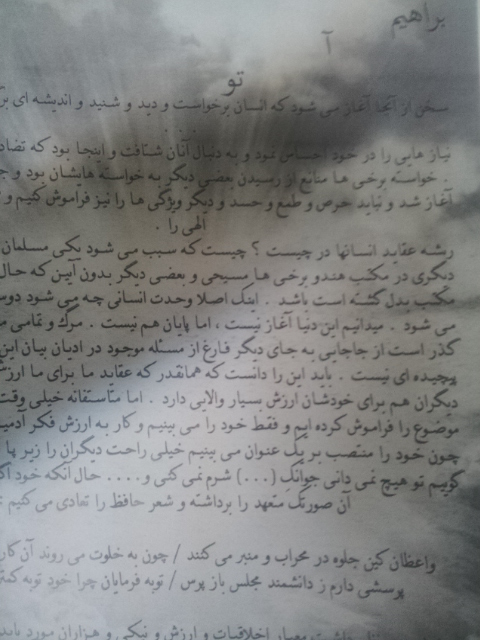 براهیم
آ
تو
سخن از آنجا آغاز می شود که انسان برخواست و دید و شنید و اندیشه ای
نیاز هایی را در خود احساس نمود و به دنبال آنان شتافت و اینجا بود که تضاد
. خواسته برخی ها منانع از رسیدن بعضی دیگر به خواسته هایشان بود و
آغاز شد و نباید حرص و طمع و حسد و دیگر ویژگی ها را نیز فراموش کنیم و
الهی را .
ریشه عقاید انسانها در چیست ؟ چیست که سبب می شود یکی مسلمان
دیگری در مکتب هندو برخی ها مسیحی و بعضی دیگر بدون آیین که حال
مکتب بدل گشته است باشد . اینک اصلا وحدت انسانی چه می شود
می شود . میدانیم این دنیا آغاز نیست ، اما پایان هم نیست . مرگ و تمامی
گذر است از جاجایی به جای دیگر فارغ از مسئله موجود در ادیان بیان این
پیچیده ای نیست . باید این را دانست که همانقدر که عقاید ما برای ما ارزش
دیگران هم برای خودشان ارزش بسیار والایی دارد . اما متاسفانه خیلی وقت
موضوع را فراموش کرده ایم و فقط خود را می بینیم و کار به ارزش فکر آدمی
چون خود را منتصب بر یک عنوان می بینیم خیلی راحت دیگران را زیر پا
گوییم تو هیچ نمی دانی جوانک (...) شرم نمی کنی و.... حال آنکه خود
آن صورتک متعهد را برداشته و شعر حافظ را تعادی می کنیم
واعظان کین جلوه در محراب و منبر می کنند / چون به خلوت می روند آن کار
پرسشی دارم ز دانشمند مجلس باز پرس / توبه فرمایان چرا خود توبه
معیار اخلاقیات و ارزش و نیکی و هزاران مورد